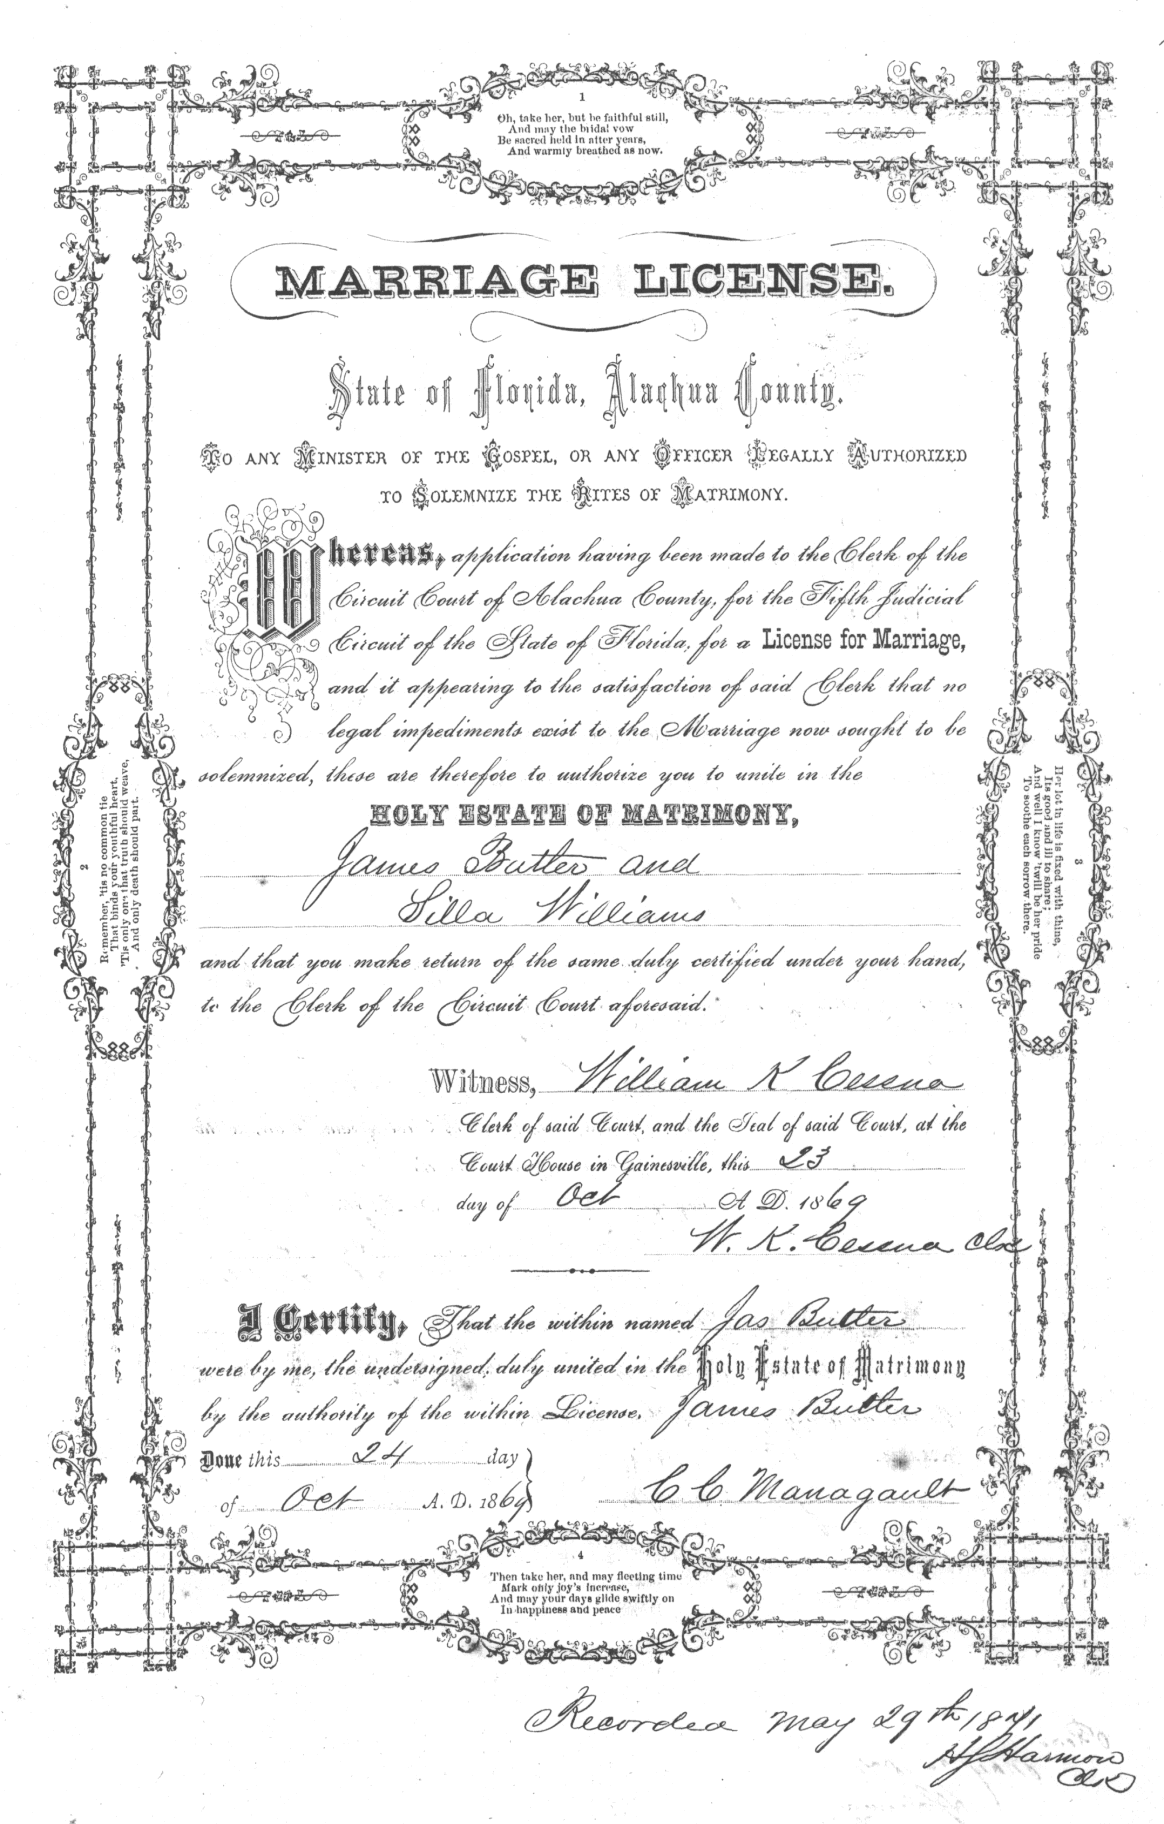 1
Oh, take her, but be faithful still,
And may the bridal vow
Be sacred held in after years,
And warmly breathed as now.
MARRIAGE LICENSE.
State of Florida, Alachua County.
TO ANY MINISTER OF THE GOSPEL, OR ANY OFFICER LEGALLY AUTHORIZED
TO SOLEMNIZE THE RITES OF MATRIMONY.
Whereas, application having been made to the Clerk of the
Circuit Court of Alachua County, for the Fifth Judicial
Circuit of the State of Florida, for a License for Marriage,
and it appearing to the satisfaction of said Clerk that no
legal impediments exist to the Marriage now sought to be
solemnized, these are therefore to authorize you to unite in the
HOLY ESTATE OF MATRIMONY,
James Butler and
Silla Williams
and that you make return of the same duly certified under your hand,
to the Clerk of the Circuit Court aforesaid.
2
Remember, 'tis no common tie
That binds your youthful heart,
'Tis only one that truth should weave,
And only death should part.
3
Her lot in life is fixed with thine,
Its good and ill to share;
And well I know 'twill be her pride
To soothe each sorrow there.
Witness, William K Cessna
Clerk of said Court, and the Seal of said Court, at the
Court House in Gainesville, this 23
day of Oct A. D. 1869
W. K. Cessna Clk
I Certify, That the within named Jas Butler
were by me, the undersigned, duly united in the Holy Estate of Matrimony
by the authority of the within License. James Butler
Done this 24 day
of Oct A. D. 1869
C C Managault
4
Then take her, and may fleeting time
Mark only joy's increase,
And may your days glide swiftly on
In happiness and peace
Recorded May 29th 1871
Harmon
Clk